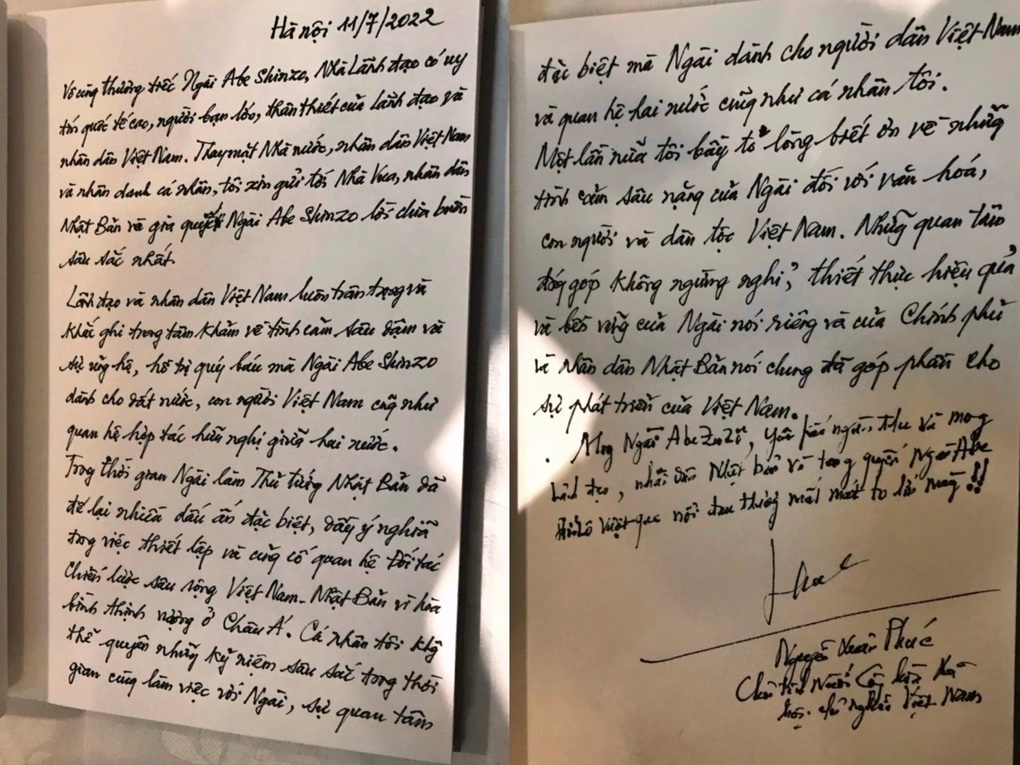 Hà nội 11/7/2022
Vô cùng thương tiếc Ngài Abe Shinzo, Nhà Lãnh đạo có uy
tín quốc tế cao, người bạn lớn, thân thiết của Lãnh đạo và
nhân dân Việt Nam. Thay mặt Nhà nước, nhân dân Việt Nam
và nhân danh cá nhân, tôi xin gửi tới Nhà Vua, nhân dân
Nhật Bản và gia quyến Ngài Abe Shinzo lời chia buồn
sâu sắc nhất.
Lãnh đạo và nhân dân Việt Nam luôn trân trọng và
khắc ghi trong tâm khảm về tình cảm sâu đậm và
sự ủng hộ, hỗ trợ quý báu mà Ngài Abe Shinzo
dành cho đất nước, con người Việt Nam cũng như
quan hệ hợp tác hữu nghị giữa hai nước.
Trong thời gian Ngài làm Thủ tướng Nhật Bản đã
để lại nhiều dấu ấn đặc biệt, đầy ý nghĩa
trong việc thiết lập và củng cố quan hệ Đối tác
chiến lược sâu rộng Việt Nam - Nhật Bản vì hòa
bình thịnh vượng ở Châu Á. Cá nhân tôi không
thể quên những kỷ niệm sâu sắc trong thời
gian cùng làm việc với Ngài, sự quan tâm
đặc biệt mà Ngài dành cho người dân Việt Nam
và quan hệ hai nước cũng như cá nhân tôi.
Một lần nữa tôi bày tỏ lòng biết ơn về những
tình cảm sâu nặng của Ngài đối với văn hoá,
con người và dân tộc Việt Nam. Những quan tâm
đóng góp không ngừng nghỉ, thiết thực hiệu quả
và bền vững của Ngài nói riêng và của Chính phủ
và nhân dân Nhật Bản nói chung đã góp phần cho
sự phát triển của Việt Nam.
Mong Ngài Abe yên nghỉ ngàn thu và mong
Lãnh đạo, nhân dân Nhật bản và tang quyến Ngài Abe
vượt qua nỗi đau thương mất mát to lớn này!!
Nguyễn Xuân Phúc
Chủ tịch Nước Cộng hòa Xã
hội chủ nghĩa Việt Nam